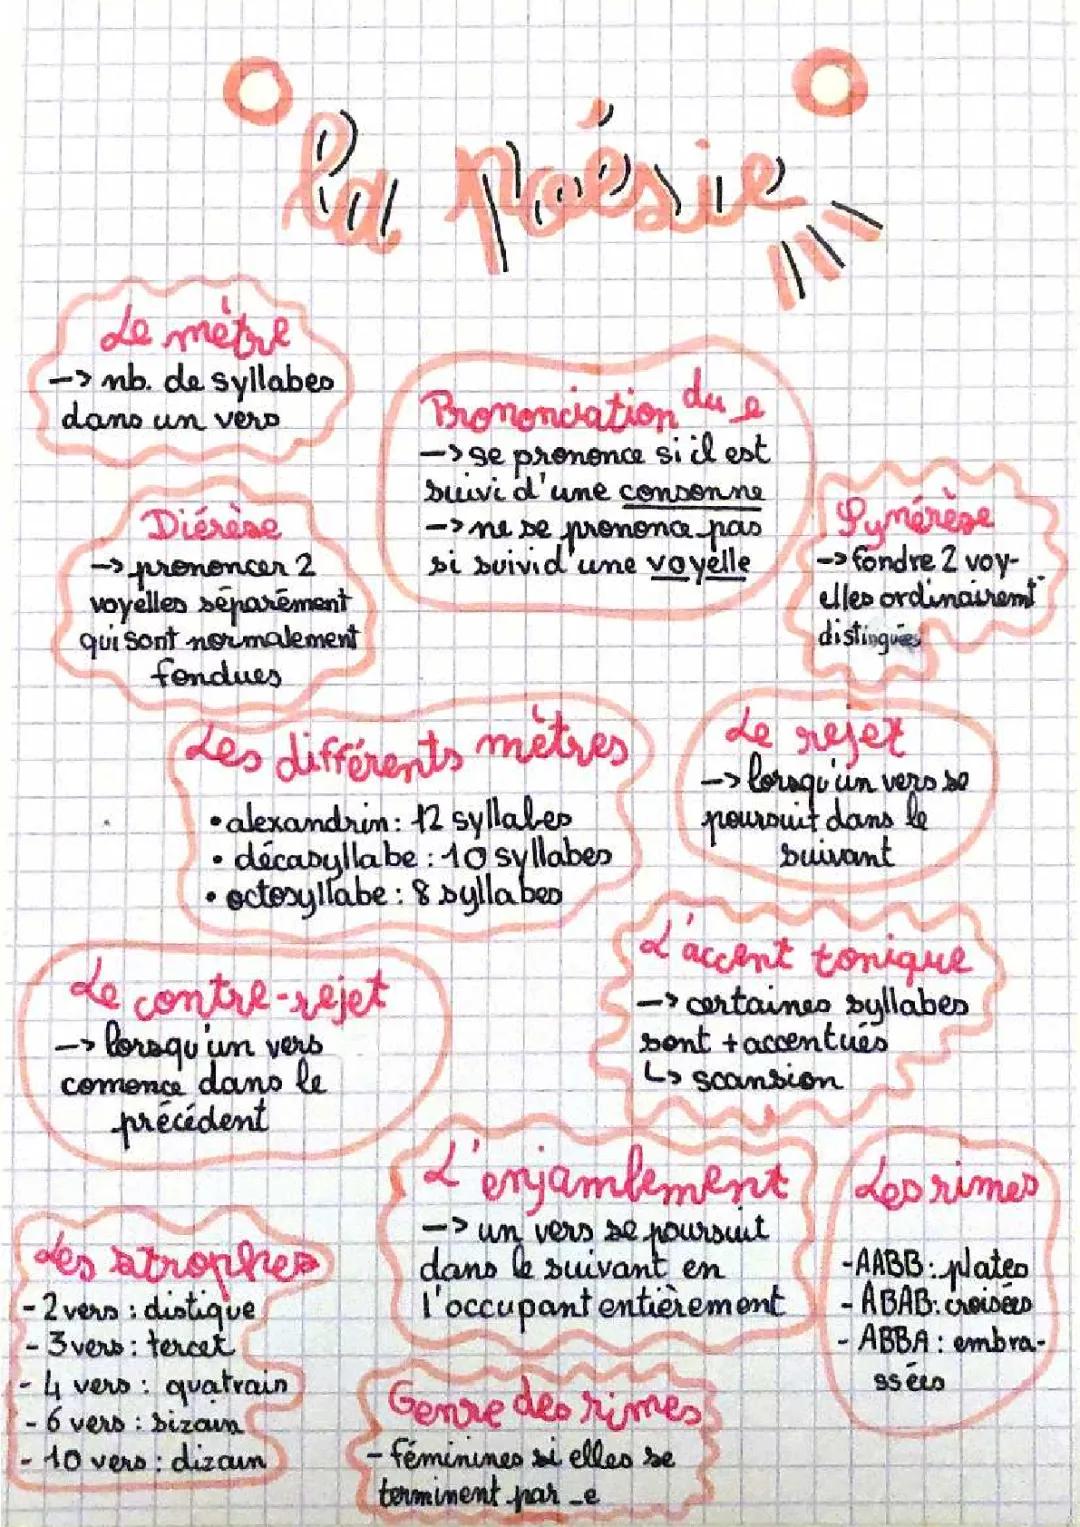 la poésie
Le mètre
-> nb. de syllabes
dans un vers
Prononciation du e
-> se prononce si il est
suivi d'une consonne
-> ne se prononce pas
si suivi d'une voyelle
Diérèse
-> prononcer 2
voyelles séparément
qui sont normalement
fondues
Synérèse
-> fondre 2 voy-
elles ordinairemt
distingués
Les différents mètres
• alexandrin : 12 syllabes
• décasyllabe : 10 syllabes
• octosyllabe : 8 syllabes
Le rejet
-> lorsqu'un vers se
poursuit dans le
suivant
Le contre-rejet
-> lorsqu'un vers
comence dans le
précédent
L'accent tonique
-> certaines syllabes
sont + accentués
↳ scansion
L'enjambement
-> un vers se poursuit
dans le suivant en
l'occupant entièrement
Les rimes
- AABB : plates
- ABAB : croisées
- ABBA : embra-
ssées
Les strophes
- 2 vers : distique
- 3 vers : tercet
- 4 vers : quatrain
- 6 vers : sizain
- 10 vers : dizain
Genre des rimes
- féminines si elles se
terminent par -e